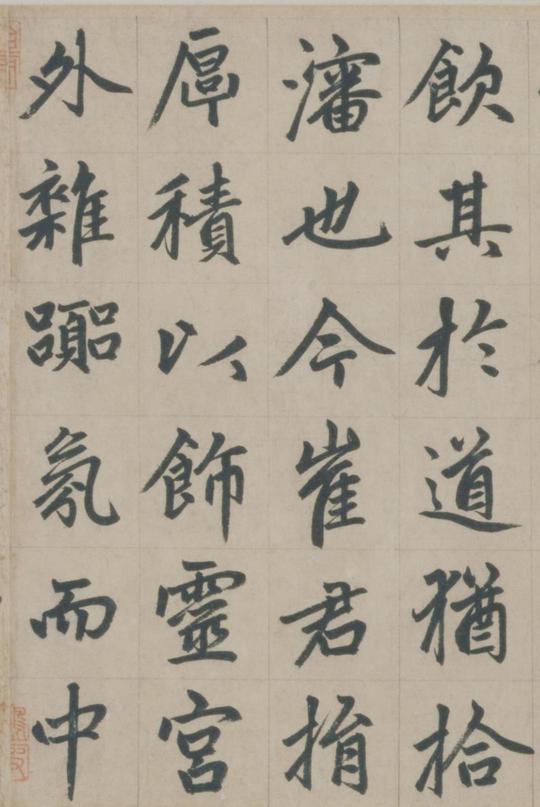 飲其於道猶拾
瀋也今崔君捐
厚積以飾靈宮
外雜囂氛而中